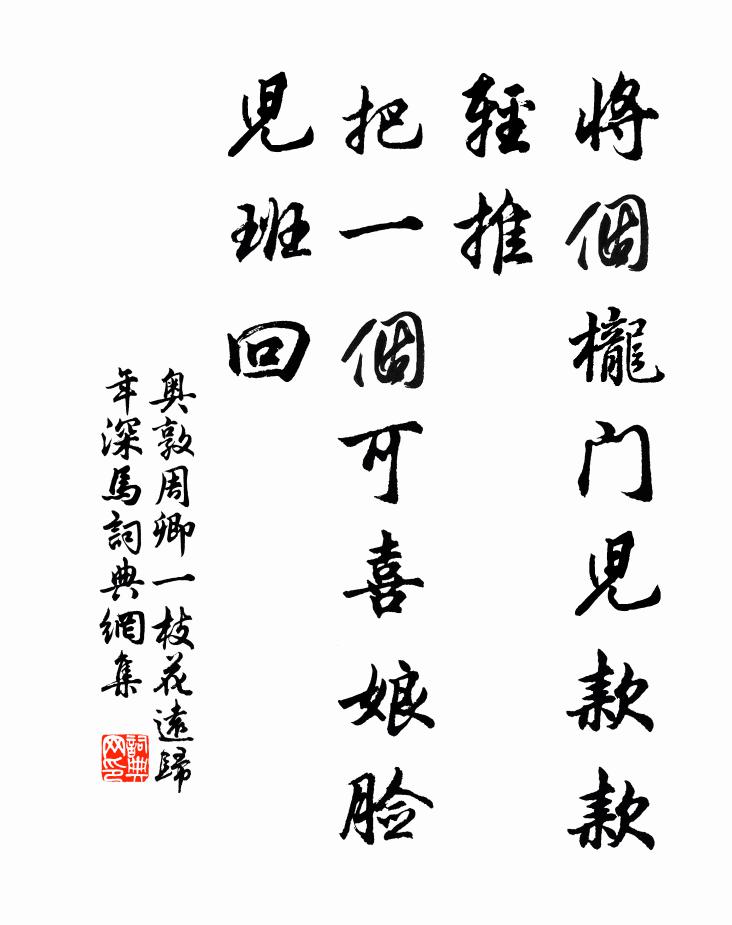 將個櫳门兒款款
輕推
把一個可喜娘脸
兒班回
奥敦周卿一枝花遠歸
年深馬詞典網集
詞典网印